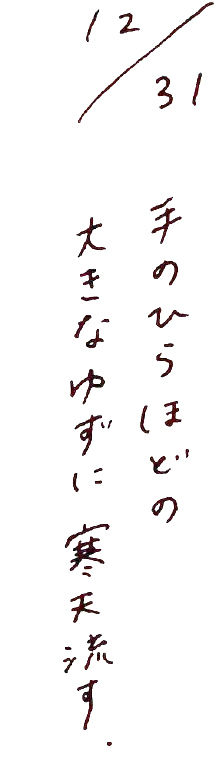 12/31
手のひらほどの
大きなゆずに寒天流す.